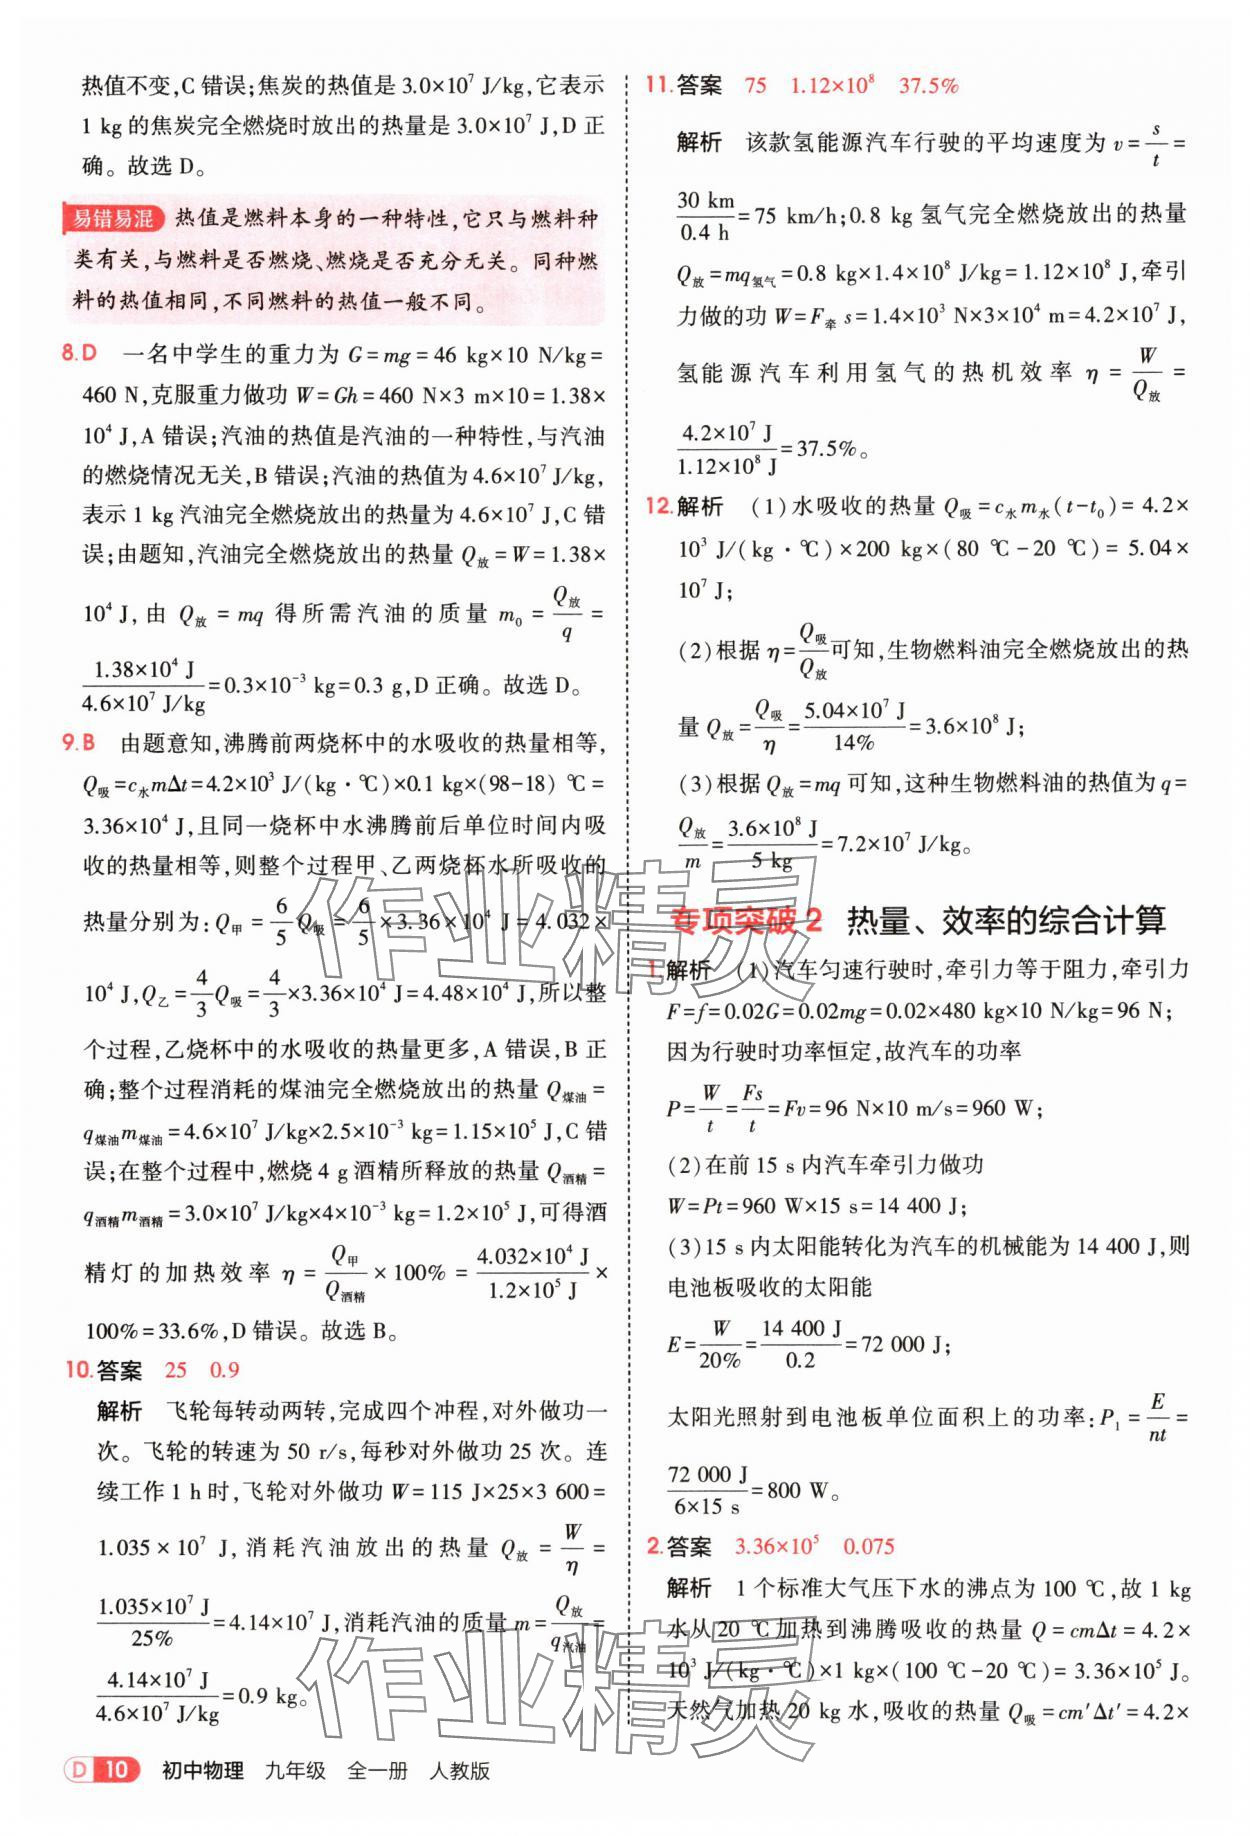 热值不变,C 错误;焦炭的热值是 3.0×10⁷ J/kg,它表示
1 kg 的焦炭完全燃烧时放出的热量是 3.0×10⁷ J,D 正
确。故选 D。
易错易混 热值是燃料本身的一种特性,它只与燃料种
类有关,与燃料是否燃烧、燃烧是否充分无关。同种燃
料的热值相同,不同燃料的热值一般不同。
8.D 一名中学生的重力为 G=mg=46 kg×10 N/kg=
460 N,克服重力做功 W=Gh=460 N×3 m×10=1.38×
10⁴ J,A 错误;汽油的热值是汽油的一种特性,与汽油
的燃烧情况无关,B 错误;汽油的热值为 4.6×10⁷ J/kg,
表示 1 kg 汽油完全燃烧放出的热量为 4.6×10⁷ J,C 错
误;由题知,汽油完全燃烧放出的热量 Q放=W=1.38×
10⁴ J,由 Q放=mq 得所需汽油的质量 m₀=Q放/q=
1.38×10⁴ J/4.6×10⁷ J/kg=0.3×10⁻³ kg=0.3 g,D 正确。故选 D。
9.B 由题意知,沸腾前两烧杯中的水吸收的热量相等,
Q吸=c水mΔt=4.2×10³ J/(kg·℃)×0.1 kg×(98-18) ℃=
3.36×10⁴ J,且同一烧杯中水沸腾前后单位时间内吸
收的热量相等,则整个过程甲、乙两烧杯水所吸收的
热量分别为:Q甲=6/5Q吸=6/5×3.36×10⁴ J=4.032×
10⁴ J,Q乙=4/3Q吸=4/3×3.36×10⁴ J=4.48×10⁴ J,所以整
个过程,乙烧杯中的水吸收的热量更多,A 错误,B 正
确;整个过程消耗的煤油完全燃烧放出的热量 Q煤油=
q煤油m煤油=4.6×10⁷ J/kg×2.5×10⁻³ kg=1.15×10⁵ J,C 错
误;在整个过程中,燃烧 4 g 酒精所释放的热量 Q酒精=
q酒精m酒精=3.0×10⁷ J/kg×4×10⁻³ kg=1.2×10⁵ J,可得酒
精灯的加热效率 η=Q甲/Q酒精×100%=4.032×10⁴ J/1.2×10⁵ J×
100%=33.6%,D 错误。故选 B。
10.答案 25 0.9
解析 飞轮每转动两转,完成四个冲程,对外做功一
次。飞轮的转速为 50 r/s,每秒对外做功 25 次。连
续工作 1 h 时,飞轮对外做功 W=115 J×25×3 600=
1.035×10⁷ J,消耗汽油放出的热量 Q放=W/η=
1.035×10⁷ J/25%=4.14×10⁷ J,消耗汽油的质量 m=Q放/q汽油=
4.14×10⁷ J/4.6×10⁷ J/kg=0.9 kg。
11.答案 75 1.12×10⁸ 37.5%
解析 该款氢能源汽车行驶的平均速度为 v=s/t=
30 km/0.4 h=75 km/h;0.8 kg 氢气完全燃烧放出的热量
Q放=mq氢气=0.8 kg×1.4×10⁸ J/kg=1.12×10⁸ J,牵引
力做的功 W=F牵 s=1.4×10³ N×3×10⁴ m=4.2×10⁷ J,
氢能源汽车利用氢气的热机效率 η=W/Q放=
4.2×10⁷ J/1.12×10⁸ J=37.5%。
12.解析 (1)水吸收的热量 Q吸=c水m水(t-t₀)=4.2×
10³ J/(kg·℃)×200 kg×(80 ℃-20 ℃)=5.04×
10⁷ J;
(2)根据 η=Q吸/Q放可知,生物燃料油完全燃烧放出的热
量 Q放=Q吸/η=5.04×10⁷ J/14%=3.6×10⁸ J;
(3)根据 Q放=mq 可知,这种生物燃料油的热值为 q=
Q放/m=3.6×10⁸ J/5 kg=7.2×10⁷ J/kg。
专项突破2 热量、效率的综合计算
1.解析 (1)汽车匀速行驶时,牵引力等于阻力,牵引力
F=f=0.02G=0.02mg=0.02×480 kg×10 N/kg=96 N;
因为行驶时功率恒定,故汽车的功率
P=W/t=Fs/t=Fv=96 N×10 m/s=960 W;
(2)在前 15 s 内汽车牵引力做功
W=Pt=960 W×15 s=14 400 J;
(3)15 s 内太阳能转化为汽车的机械能为 14 400 J,则
电池板吸收的太阳能
E=W/20%=14 400 J/0.2=72 000 J;
太阳光照射到电池板单位面积上的功率:P₁=E/nt=
72 000 J/6×15 s=800 W。
2.答案 3.36×10⁵ 0.075
解析 1 个标准大气压下水的沸点为 100 ℃,故 1 kg
水从 20 ℃加热到沸腾吸收的热量 Q=cmΔt=4.2×
10³ J/(kg·℃)×1 kg×(100 ℃-20 ℃)=3.36×10⁵ J。
天然气加热 20 kg 水,吸收的热量 Q吸=cm′Δt′=4.2×
作业精灵
作业精灵
D 10 初中物理 九年级 全一册 人教版